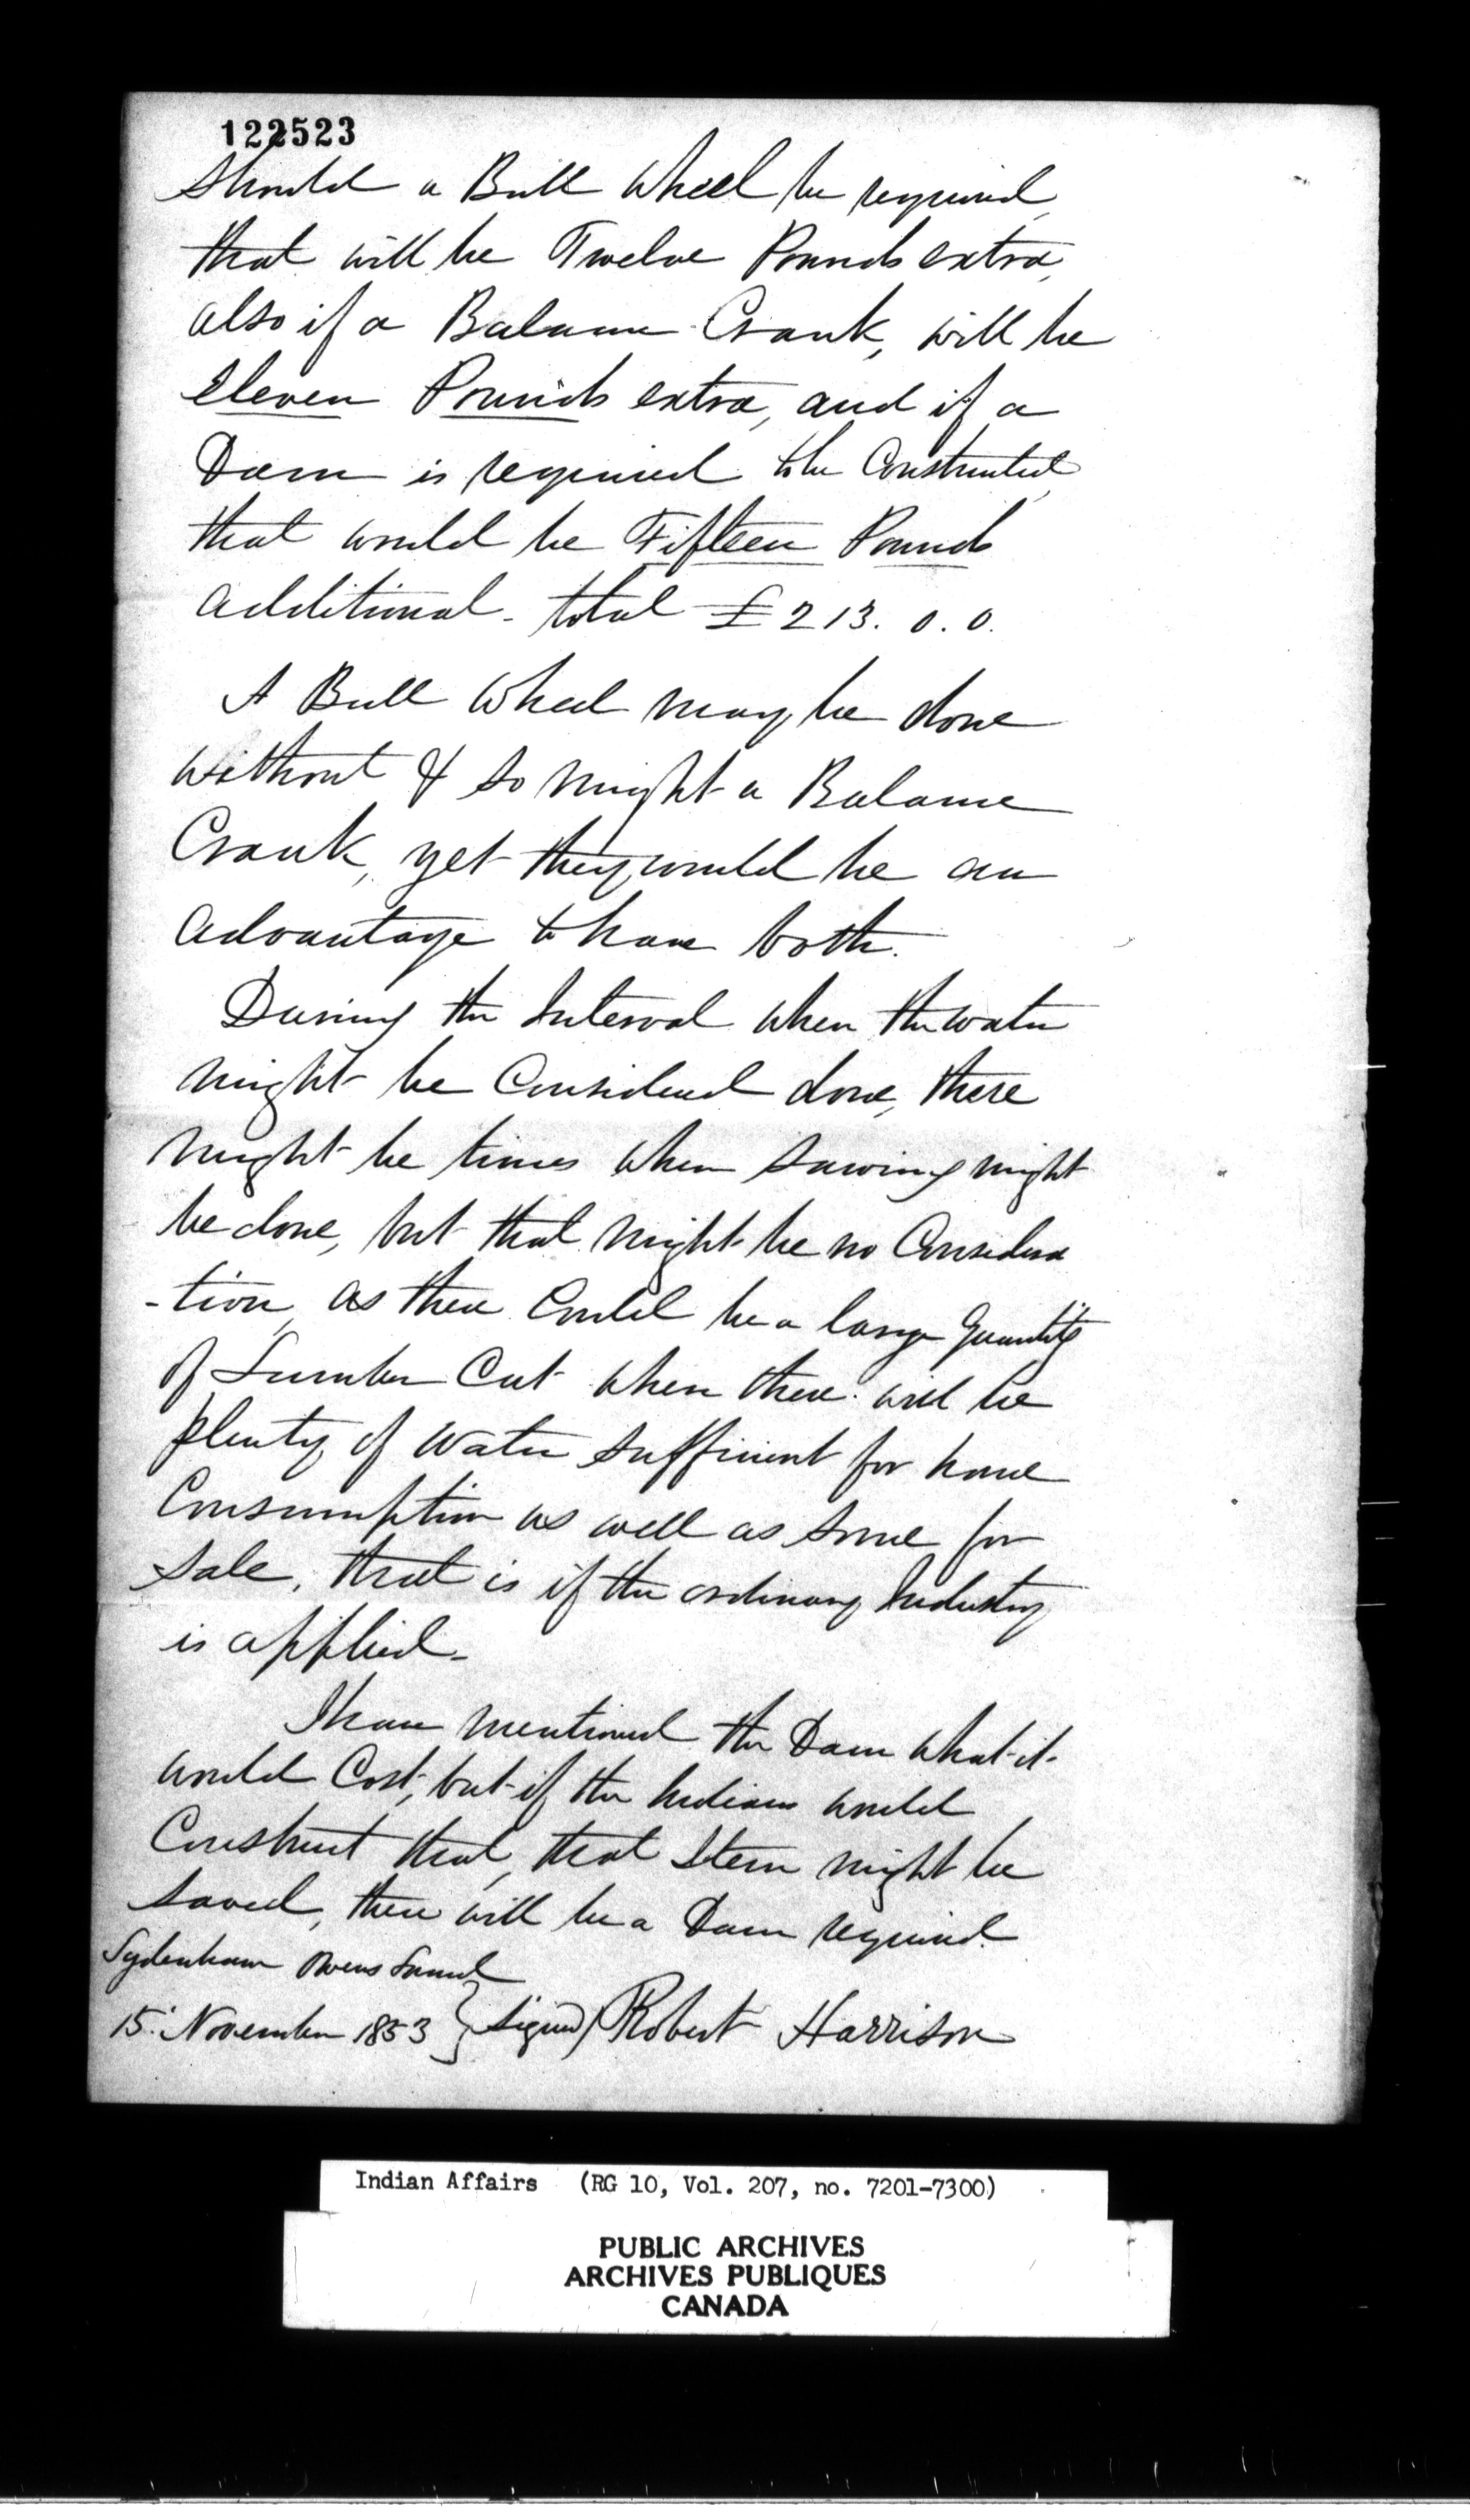 122523
Should a Bull Wheel be required,
that will be Twelve Pounds extra,
also if a Balance Crank, will be
Eleven Pounds extra, and if a
Dam is required to be Constructed,
that would be Fifteen Pounds
additional - total £213. 0. 0.
A Bull Wheel may be done
without & so might a Balance
Crank, yet they would be an
advantage to have both.
During the Interval when the water
might be Considered done, there
might be times when Sawing might
be done, but that might be no Considera
-tion, as there Could be a large Quantity
of Lumber Cut when there will be
plenty of Water sufficient for home
Consumption as well as some for
Sale, that is if the ordinary Industry
is applied -
I have mentioned the Dam what it
would Cost, but if the Indians would
Construct that, that Item might be
saved, there will be a Dam required.
Sydenham Owens Sound
15: November 1853 } Signed) Robert Harrison
Indian Affairs (RG 10, Vol. 207, no. 7201-7300)
PUBLIC ARCHIVES
ARCHIVES PUBLIQUES
CANADA